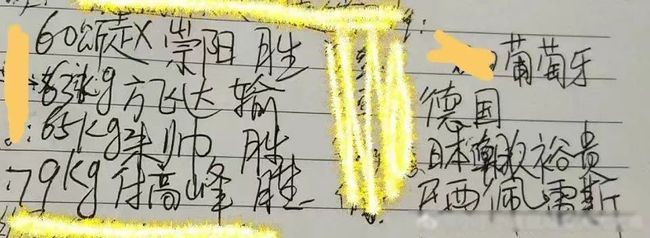 60公斤 X 崇阳 胜
kg方飞达 输
65Kg朱帅 胜
79Kg付高峰 胜
葡萄牙
德国
日本朝秋裕贵
巴西佩雷斯